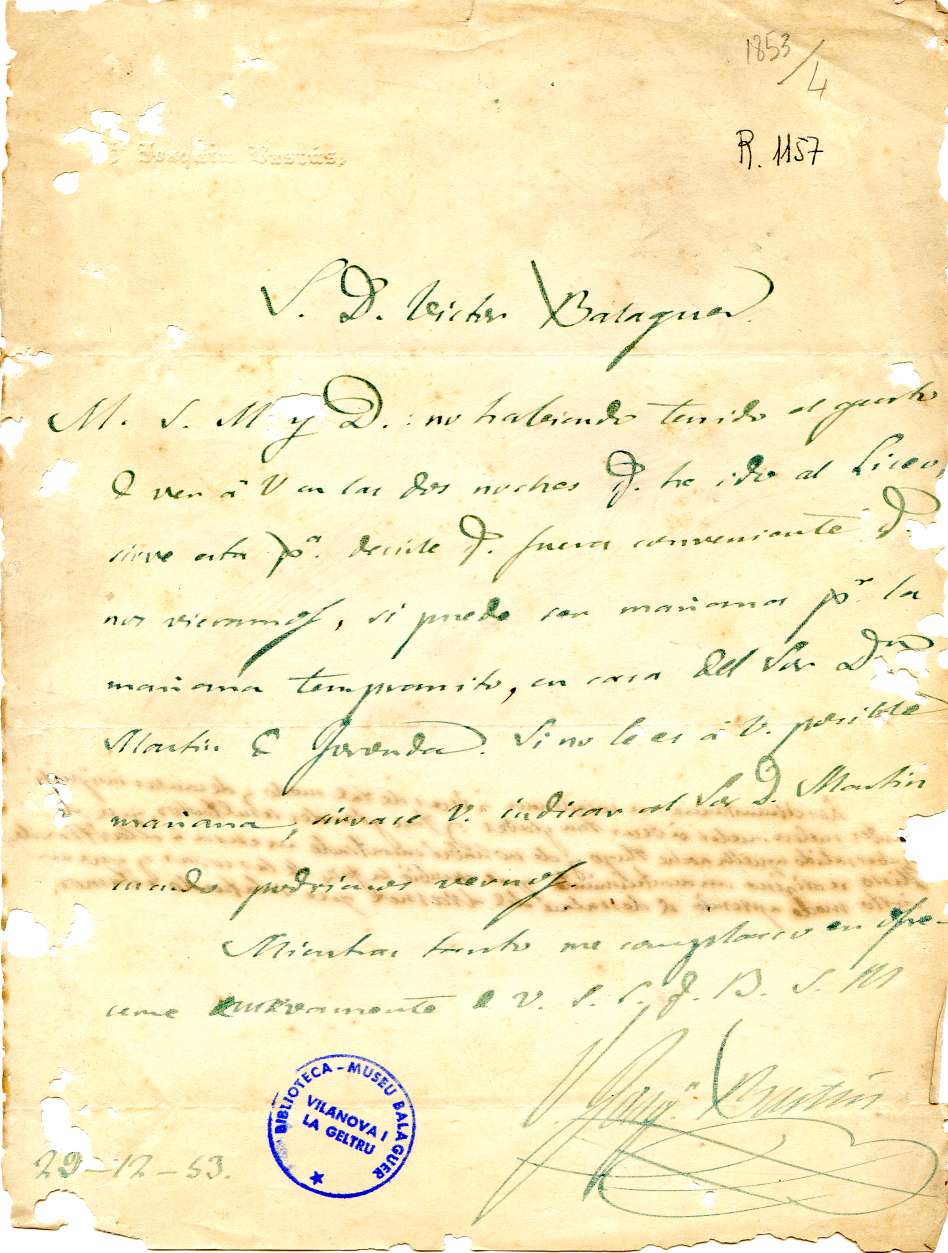 1853/4
R. 1157
Joaquin Bastús,
S. D. Victor Balaguer.
M. S. M. y D.: no habiendo tenido el gusto
de ver á V en las dos noches q. he ido al Liceo,
sirve esta pª. decirle q. fuera conveniente q.
nos vieramos, si puede ser mañana pr. la
mañana tempranito, en casa del Sor Dn
Martin de. Si no le es á V. posible
mañana, sirvase V. indicar al Sor D. Martin
cuando podriamos vernos.
Mientras tanto me complazco en ofre-
cerme nuevamente de V. S. S. q. B. S. M
Joaqn. Bastús
29-12-53.
BIBLIOTECA - MUSEU BALAGUER
VILANOVA I
LA GELTRU